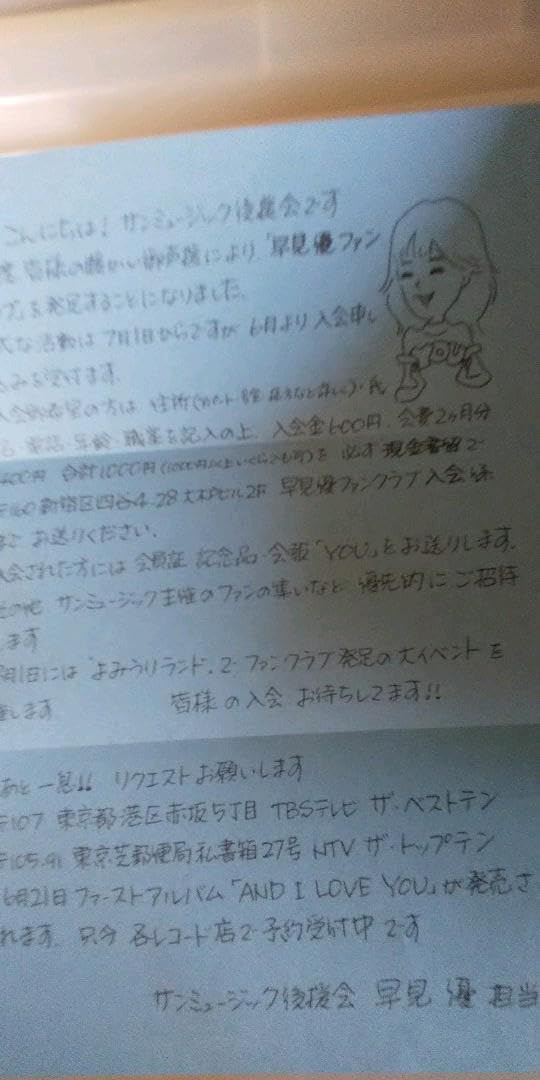 こんにちは! サンミュージック後援会です
皆様の暖かい御声援により、「早見優ファン
ブ」を発足することになりました。
な活動は7月1日からですが 6月より入会申し
込みを受けます。
入会御希望の方は 住所・氏
電話・年齢・職業を記入の上、入会金600円、会費2ヶ月分
400円 合計1000円を必ず現金書留で
〒160 新宿区四谷4-28 2F 早見優ファンクラブ入会係
まで お送りください。
入会された方には 会員証 記念品・会報「YOU」をお送りします。
その他 サンミュージック主催のファンの集いなど 優先的にご招待
します
月1日には"よみうりランド"で ファンクラブ発足の大イベントを
します 皆様の入会 お待ちしてます!!
あと一息!! リクエストお願いします
〒107 東京都港区赤坂5丁目 TBSテレビ ザ・ベストテン
〒105-91 東京芝郵便局私書箱27号 NTV ザ・トップテン
6月21日 ファーストアルバム「AND I LOVE YOU」が発売さ
れます。只今 各レコード店で予約受付中です
サンミュージック後援会 早見 優 担当